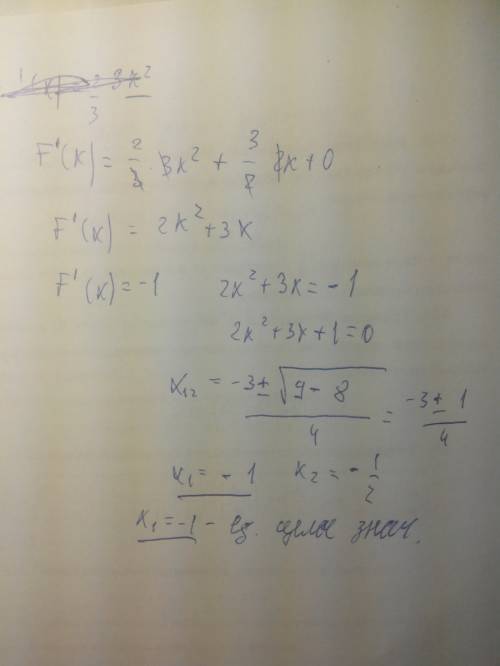 F'(x) = 2/3 · 3x² + 3/2 2x + 0
F'(x) = 2x² + 3x
F'(x) = -1 2x² + 3x = -1
2x² + 3x + 1 = 0
x₁₂ = -3 ± √9 - 8 / 4 = -3 ± 1 / 4
x₁ = - 1 x₂ = - 1/2
x₁ = -1 - ед. целое знач.